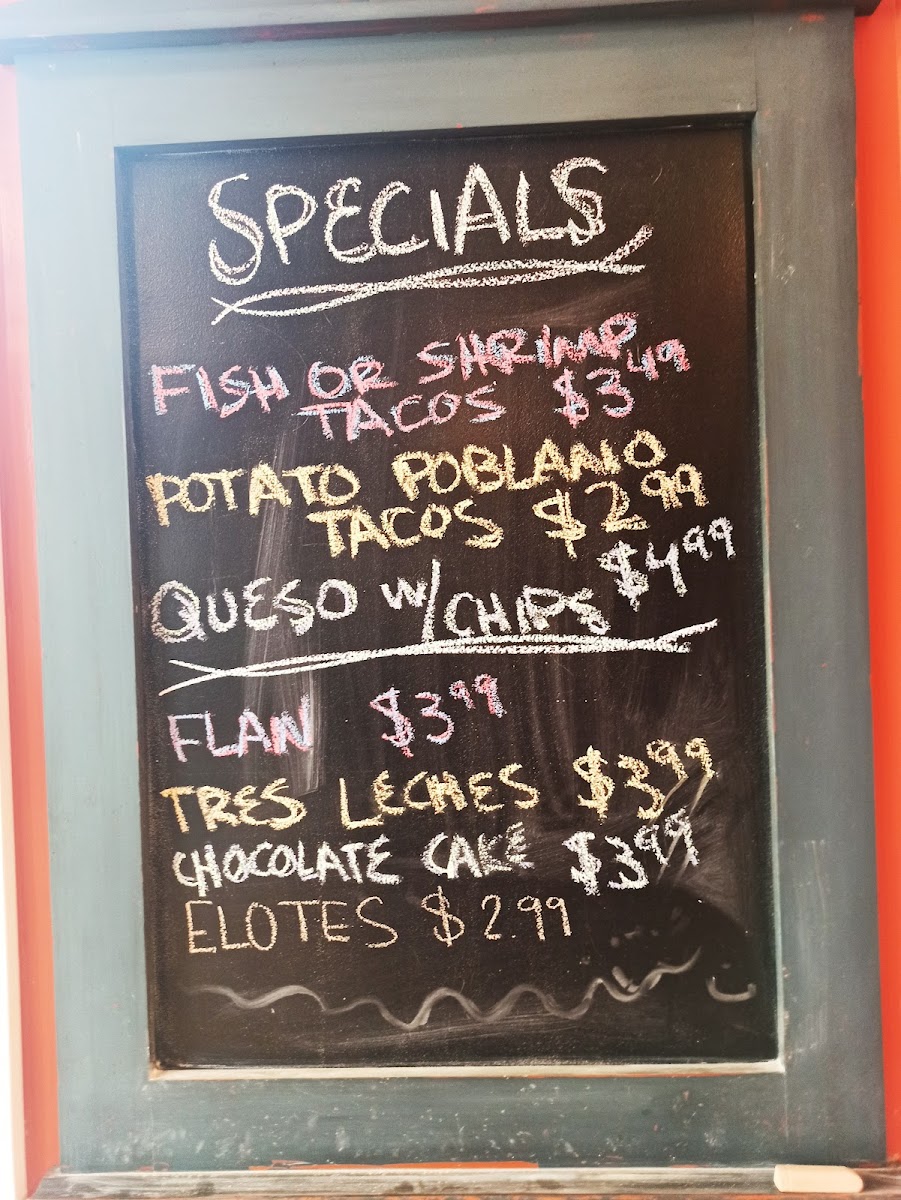 SPECIALS
FISH OR SHRIMP
TACOS $3.49
POTATO POBLANO
TACOS $2.99
QUESO W/CHIPS $4.99
FLAN $3.99
TRES LECHES $3.99
CHOCOLATE CAKE $3.99
ELOTES $2.99